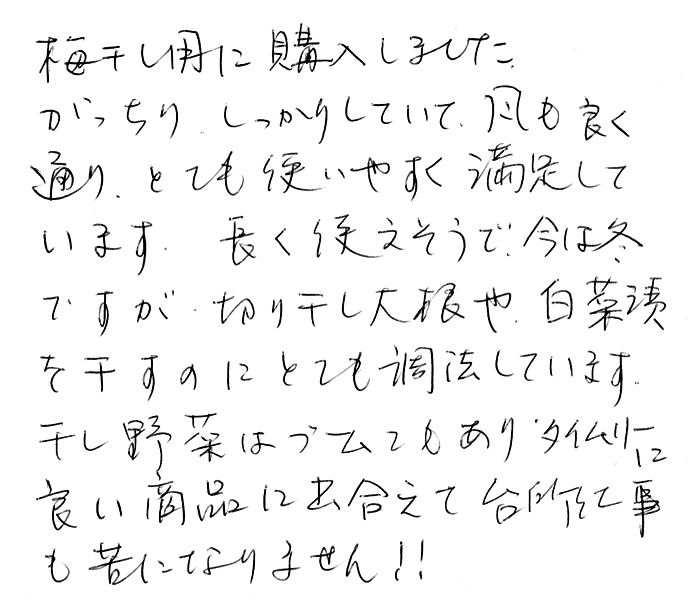 梅干し用に購入しました。
がっちり、しっかりしていて、風も良く
通り、とても使いやすく満足して
います。長く使えそうで、今は冬
ですが、切り干し大根や、白菜漬
を干すのにとても調法しています。
干し野菜はブームでもあり、タイムリーに
良い商品に出合えて台所仕事
も苦になりません!!